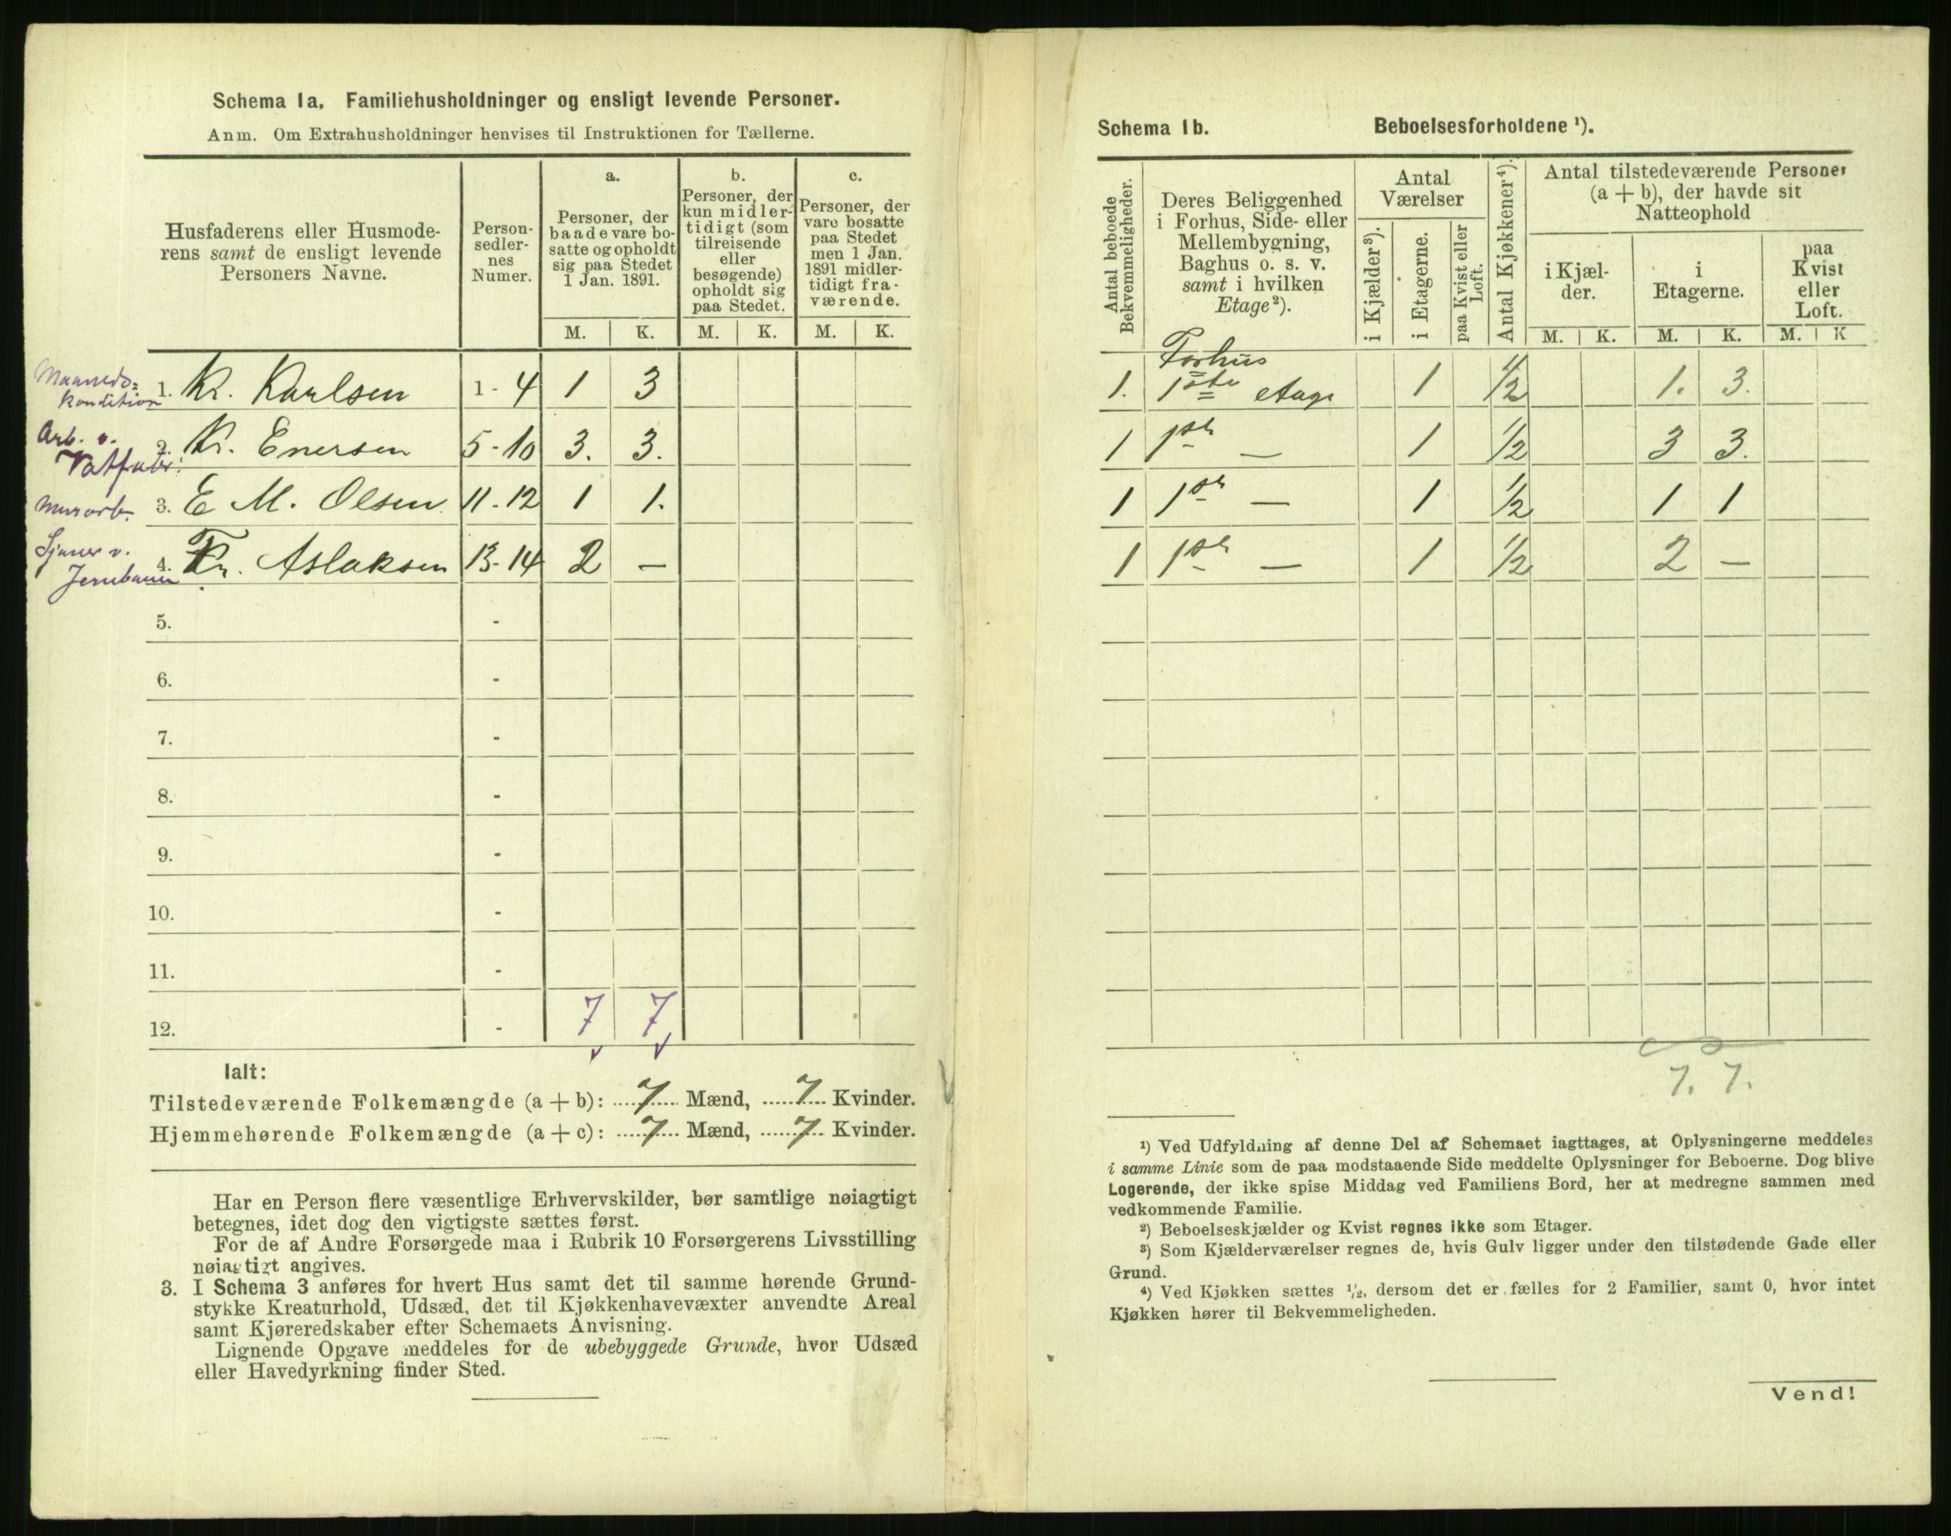 Schema 1a. Familiehusholdninger og ensligt levende Personer.
Anm. Om Extrahusholdninger henvises til Instruktionen for Tællerne.
Husfaderens eller Husmode-
rens samt de ensligt levende
Personers Navne.
Person-
sedler-
nes
Numer.
a.
Personer, der
baade vare bo-
satte og opholdt
sig paa Stedet
1 Jan. 1891.
b.
Personer, der
kun midler-
tidigt (som
tilreisende
eller
besøgende)
opholdt sig
paa Stedet.
c.
Personer, der
vare bosatte
paa Stedet
men 1 Jan.
1891 midler-
tidigt fra-
værende.
M. K. M. K. M. K.
Maaneds=
kondition
1. Kr. Karlsen 1 - 4 1 3
Arb. v.
2. Kr. Enersen 5 - 10 3. 3.
Murarb.
3. E M. Olsen 11 - 12 1 1.
Sjauer v.
Jernbanen
4. Aslaksen 13 - 14 2 —
5. -
6. -
7. -
8. -
9. -
10. -
11. -
12. - 7 7
Ialt:
Tilstedeværende Folkemængde (a + b): 7 Mænd, 7 Kvinder.
Hjemmehørende Folkemængde (a + c): 7 Mænd, 7 Kvinder.
Har en Person flere væsentlige Erhvervskilder, bør samtlige nøiagtigt
betegnes, idet dog den vigtigste sættes først.
For de af Andre Forsørgede maa i Rubrik 10 Forsørgerens Livsstilling
nøiagtigt angives.
3. I Schema 3 anføres for hvert Hus samt det til samme hørende Grund-
stykke Kreaturhold, Udsæd, det til Kjøkkenhavevæxter anvendte Areal
samt Kjøreredskaber efter Schemaets Anvisning.
Lignende Opgave meddeles for de ubebyggede Grunde, hvor Udsæd
eller Havedyrkning finder Sted.
Schema 1b. Beboelsesforholdene ¹).
Antal beboede
Bekvemmeligheder.
Deres Beliggenhed
i Forhus, Side- eller
Mellembygning,
Baghus o. s. v.
samt i hvilken
Etage²).
Antal
Værelser
i Kjælder³).
i Etagerne.
paa Kvist eller
Loft.
Antal Kjøkkener⁴).
Antal tilstedeværende Personer
(a + b), der havde sit
Natteophold
i Kjæl-
der.
i
Etagerne.
paa
Kvist
eller
Loft.
M. K. M. K. M. K
Forhus
1. 1ste etage 1 1/2 1. 3.
1 1ste — 1 1/2 3 3.
1 1ste — 1 1/2 1 1
1 1ste — 1 1/2 2 —
7. 7.
¹) Ved Udfyldning af denne Del af Schemaet iagttages, at Oplysningerne meddeles
i samme Linie som de paa modstaaende Side meddelte Oplysninger for Beboerne. Dog blive
Logerende, der ikke spise Middag ved Familiens Bord, her at medregne sammen med
vedkommende Familie.
²) Beboelseskjælder og Kvist regnes ikke som Etager.
³) Som Kjælderværelser regnes de, hvis Gulv ligger under den tilstødende Gade eller
Grund.
⁴) Ved Kjøkken sættes ¹/₂, dersom det er fælles for 2 Familier, samt 0, hvor intet
Kjøkken hører til Bekvemmeligheden.
Vend!